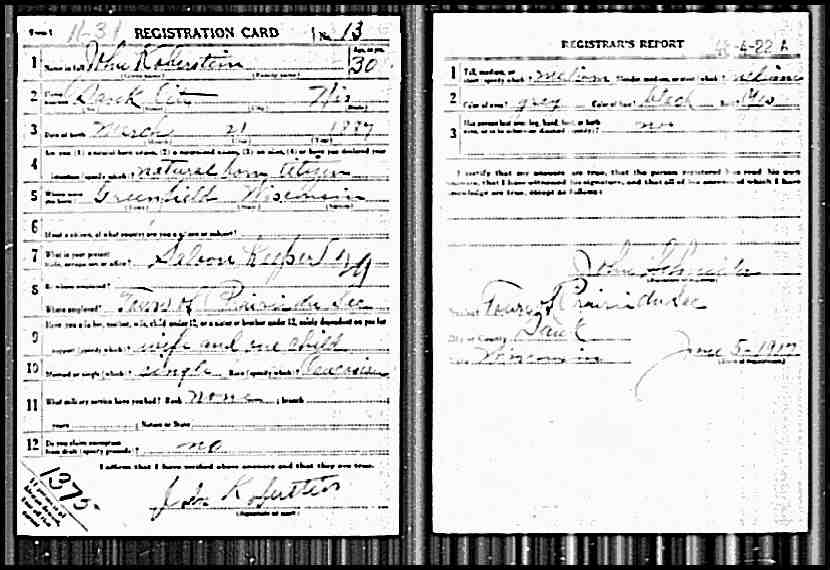 Form 1 11-31 REGISTRATION CARD No. 13
1 Name in full John Koberstein Age, in yrs. 30
(Given name) (Family name)
2 Home address Sauk City Wis
(No.) (Street) (City) (State)
3 Date of birth March 21 1887
(Month) (Day) (Year)
4 Are you (1) a natural born citizen, (2) a naturalized citizen, (3) an alien, (4) or have you declared your
intention (specify which)? natural born citizen
5 Where were you born? Greenfield Wisconsin
(Town) (State) (Nation)
6 If not a citizen, of what country are you a citizen or subject?
7 What is your present trade, occupation, or office? Saloon Keeper
8 By whom employed?
Where employed? Town of Prairie du Sac
9 Have you a father, mother, wife, child under 12, or a sister or brother under 12, solely dependent on you for
support (specify which)? wife and one child
10 Married or single (which)? single Race (specify which)? Caucasian
11 What military service have you had? Rank none ; branch
years ; Nation or State
12 Do you claim exemption from draft (specify grounds)? no
I affirm that I have verified above answers and that they are true.
John Koberstein
(Signature or mark)
1375
REGISTRAR'S REPORT 48-4-22 A
1 Tall, medium, or short (specify which)? medium Slender, medium, or stout (which)? medium
2 Color of eyes? grey Color of hair? black Bald? Yes
3 Has person lost arm, leg, hand, foot, or both eyes, or is he otherwise disabled (specify)? no
I certify that my answers are true, that the person registered has read his own
answers, that I have witnessed his signature, and that all of his answers of which I have
knowledge are true, except as follows:
John Schneider
(Signature of registrar)
Precinct Town of Prairie du Sac
City or County Sauk
State Wisconsin June 5-1917
(Date of registration)